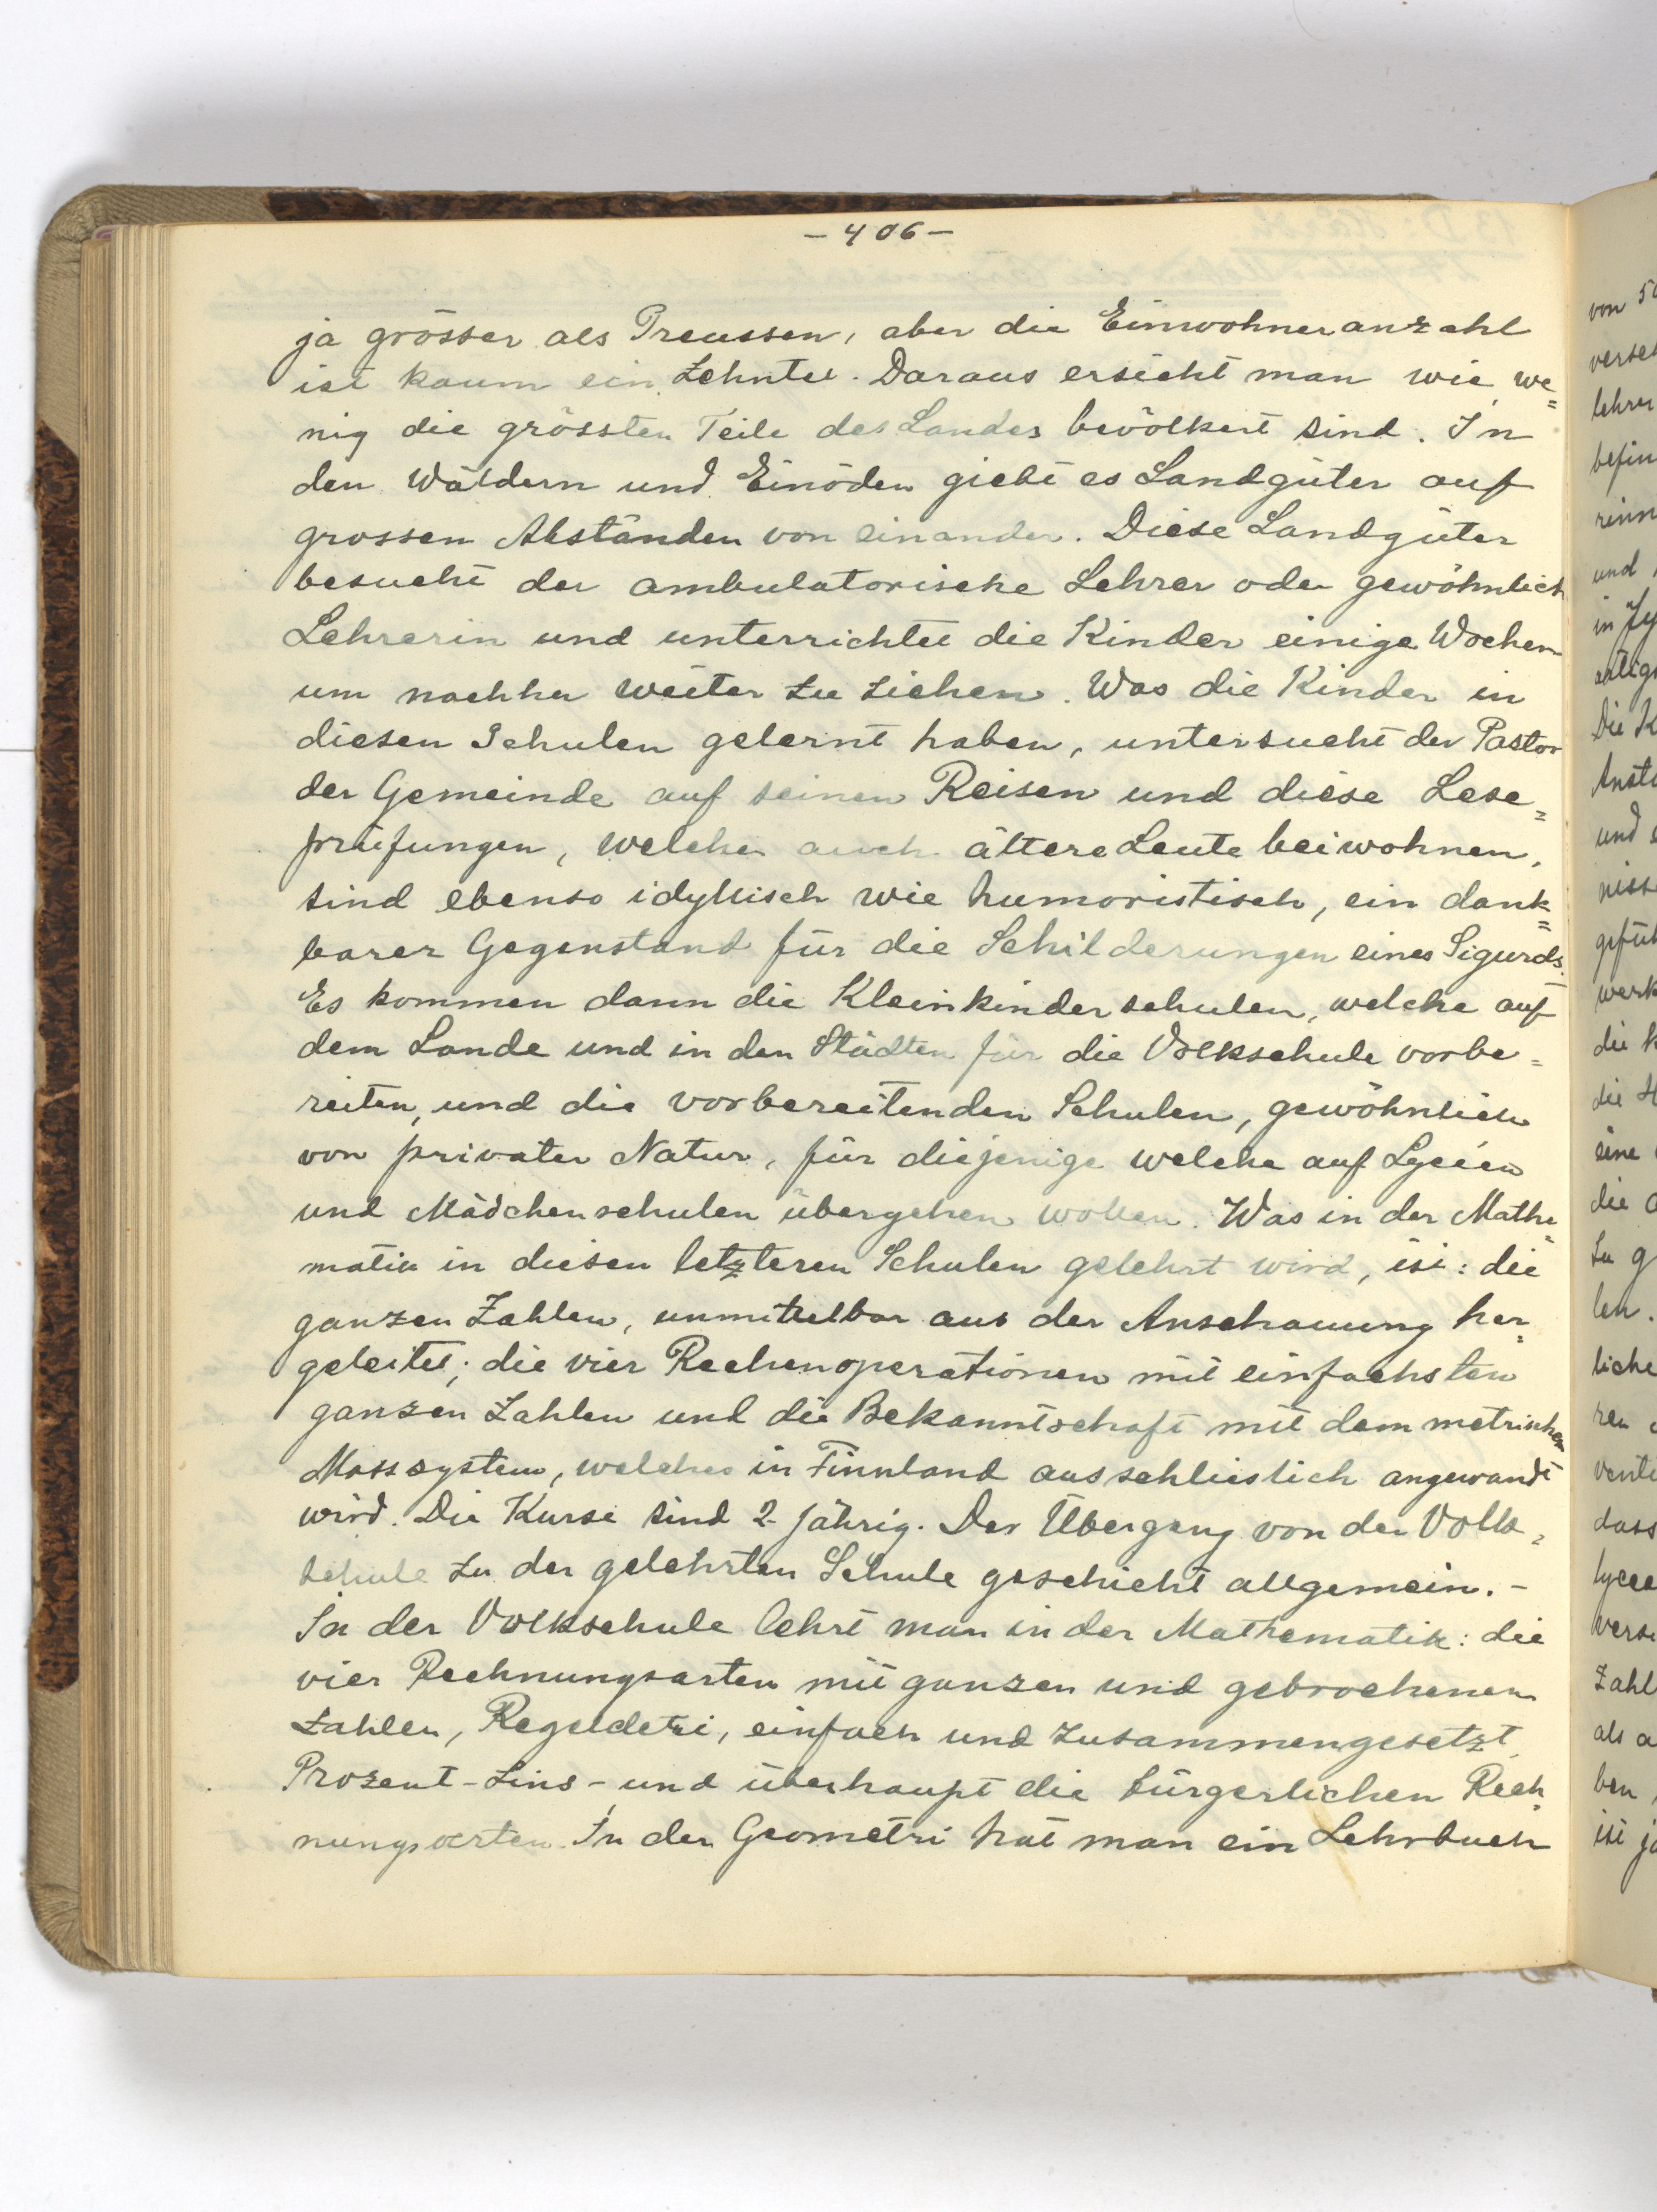 - 406 -
ja grösser als Preussen, aber die Einwohneranzahl
ist kaum ein Zehntel. Daraus ersieht man wie we=
nig die grössten Teile des Landes bevölkert sind. In
den Wäldern und Einöden giebt es Landgüter auf
grossen Abständen von einander. Diese Landgüter
besucht der ambulatorische Lehrer oder gewöhnlich
Lehrerin und unterrichtet die Kinder einige Wochen
um nachher weiter zu ziehen. Was die Kinder in
diesen Schulen gelernt haben, untersucht der Pastor
der Gemeinde auf seinen Reisen und diese Lese=
prüfungen, welchen auch ältere Leute beiwohnen,
sind ebenso idyllisch wie humoristisch, ein dank=
barer Gegenstand für die Schilderungen eines Sigurds.
Es kommen dann die Kleinkinderschulen, welche auf
dem Lande und in den Städten für die Volkschule vorbe=
reiten, und die vorbereitenden Schulen, gewöhnlich
von privater Natur, für diejenige welche auf Lycéen
und Mädchenschulen übergehen wollen. Was in der Mathe=
matik in diesen letzteren Schulen gelehrt wird, ist: die
ganzen Zahlen, unmittelbar aus der Anschauung her=
geleitet; die vier Rechenoperationen mit einfachsten
ganzen Zahlen und die Bekanntschaft mit dem metrischen
Masssystem, welches in Finnland ausschlieslich angewandt
wird. Die Kurse sind 2-jährig. Der Übergang von der Volk=
schule zu der gelehrten Schule geschieht allgemein. -
In der Volkschule lehrt man in der Mathematik: die
vier Rechnungsarten mit ganzen und gebrochenen
Zahlen, Regeldetri, einfach und zusammengesetzt,
Prozent-Zins- und überhaupt die bürgerlichen Rech=
nungsarten. In der Geometri hat man ein Lehrbuch
von
lehrer
befin
rinn
und
in Jy
Die K
und
niss
gefüh
werk
die k
die
eine
die
zu g
len.
liche
ren
dass
lycee
Zahl
als a
ben,
ist ja